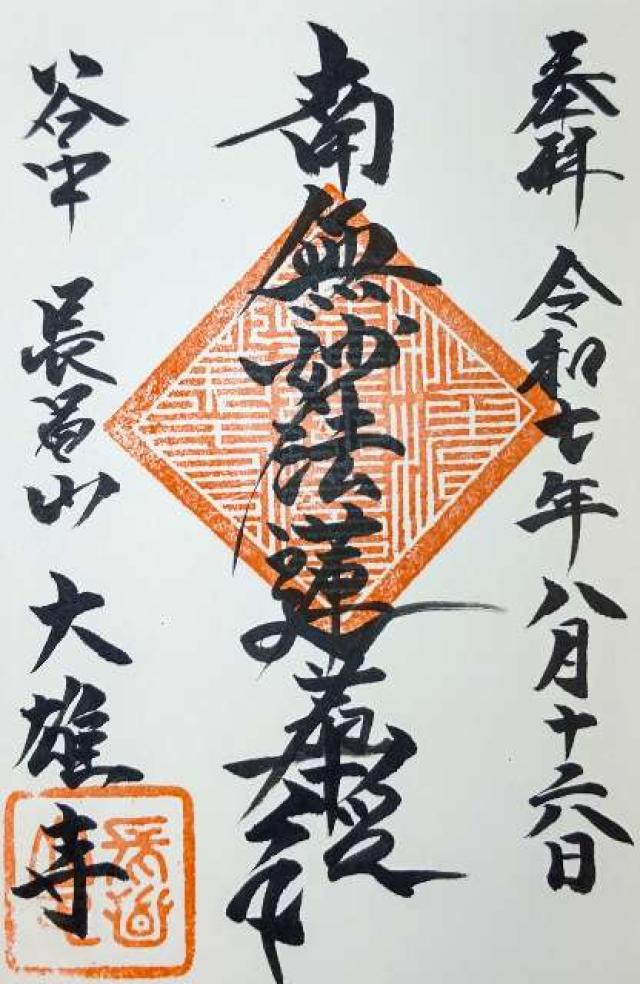 奉拝 令和七年八月十六日
南無妙法蓮華経
谷中 長昌山 大雄寺